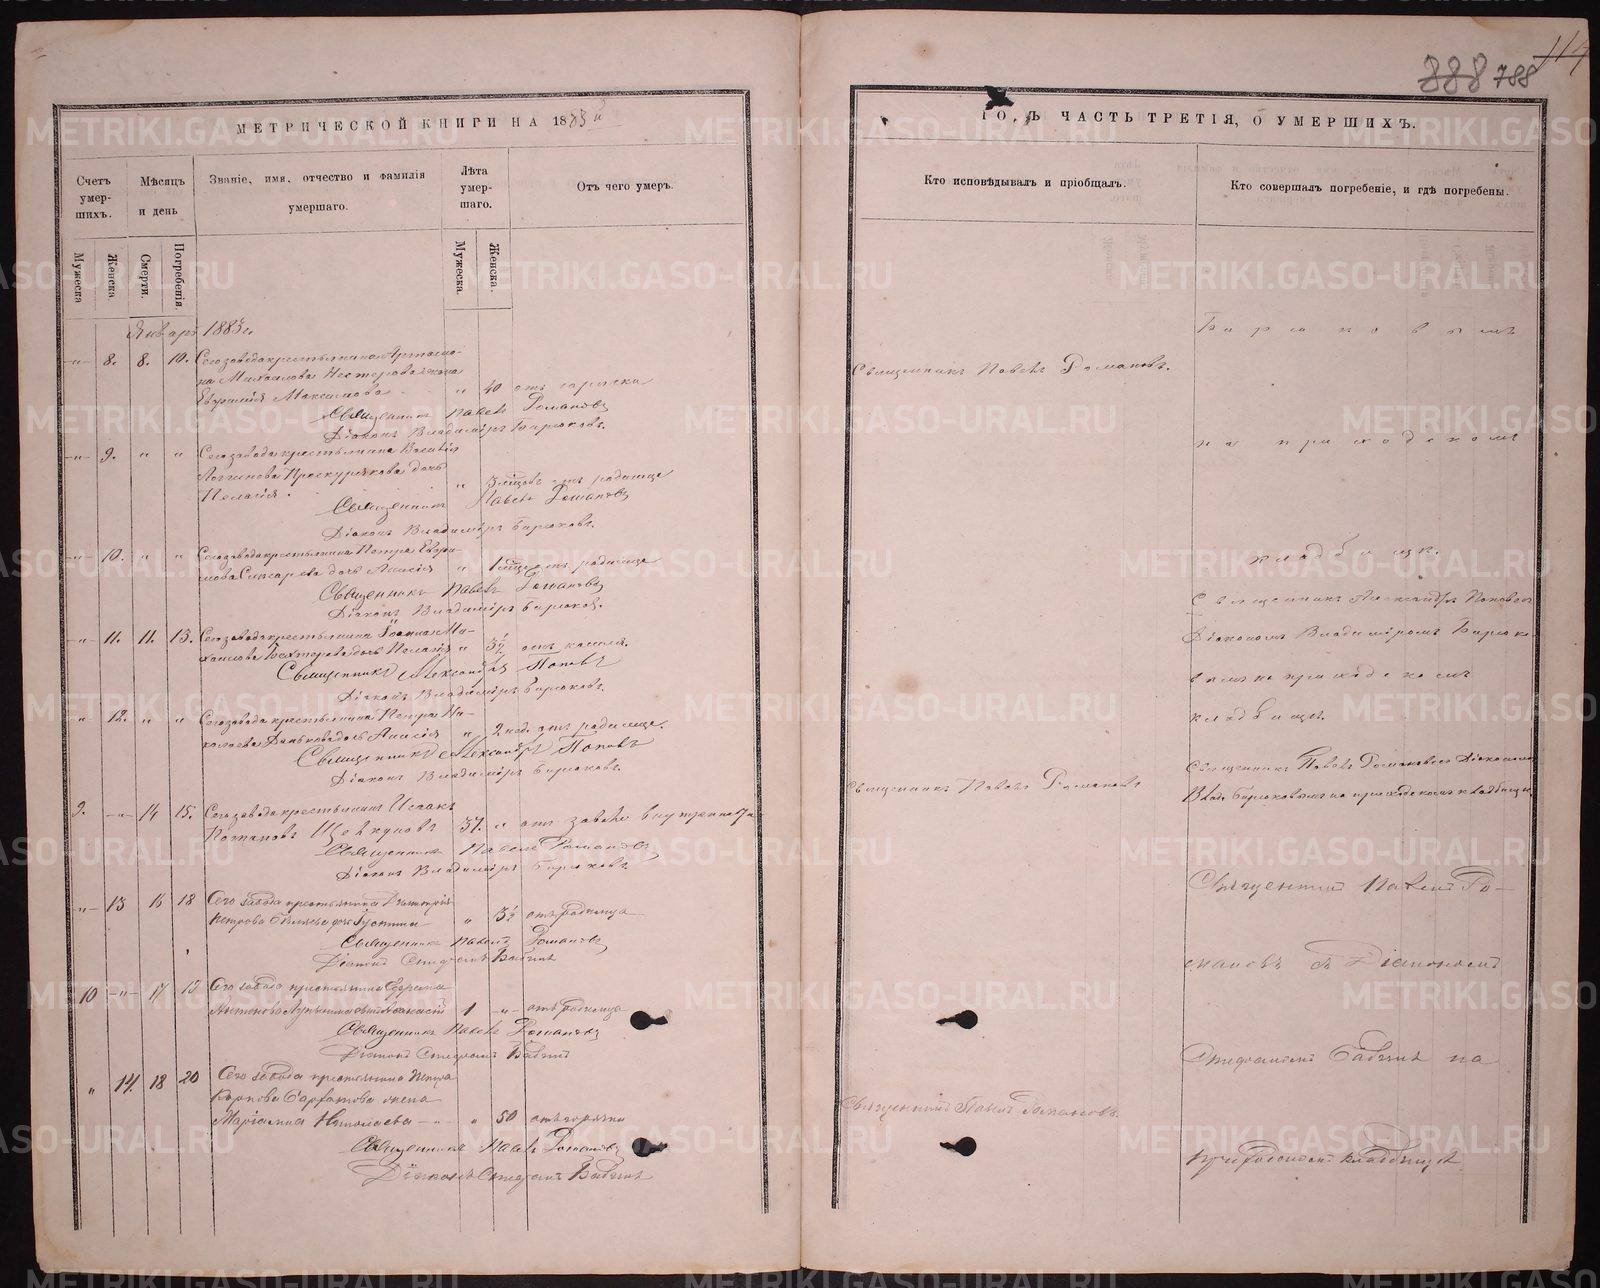 888 788
114
МЕТРИЧЕСКОЙ КНИГИ НА 1883й
ГОДЪ ЧАСТЬ ТРЕТІЯ, О УМЕРШИХЪ.
Счетъ умер-шихъ.
Мѣсяцъ и день
Званіе, имя, отчество и фамилія умершаго.
Лѣта умер-шаго.
Отъ чего умеръ.
Кто исповѣдывалъ и пріобщалъ.
Кто совершалъ погребеніе, и гдѣ погребены.
Мужеска
Женска
Смерти.
Погребенія.
Мужеска.
Женска.
Январь 1883 г.
Бирюковымъ
-"- 8. 8. 10. Сего завода крестьянина
Михаилова Нестерова жена
Евфимія Максимова " 40 отъ горячки
Священникъ Павелъ Романовъ.
Священникъ Павелъ Романовъ
Діаконъ Владиміръ Бирюковъ.
на приходскомъ
-"- 9. " " Сего завода крестьянина Василія
Логинова Проскурякова дочь
Пелагія. " 3 мѣсяц. отъ родимца
Священникъ Павелъ Романовъ
Діаконъ Владиміръ Бирюковъ.
-"- 10. " " Сего завода крестьянина Петра
дочь Анисія " 1 отъ родимца
кладбищѣ.
Священникъ Павелъ Романовъ
Діаконъ Владиміръ Бирюковъ.
Священникъ Александръ Поповъ
-"- 11. 11. 13. Сего завода крестьянина Іоанна Ми-
хаилова Бехтерева дочь Пелагія " 3½ отъ кашля.
Діакономъ Владиміромъ Бирюко-
Священникъ Александръ Поповъ
вымъ на приходскомъ
Діаконъ Владиміръ Бирюковъ.
кладбищѣ.
-"- 12. " " Сего завода крестьянина Петра Ни-
колаева дочь Анисія " 2 нед. отъ родимца.
Священникъ Александръ Поповъ
Діаконъ Владиміръ Бирюковъ.
Священникъ Павелъ Романовъ
Священникъ Павелъ Романовъ съ Діакономъ
Влад. Бирюковымъ на приходскомъ кладбищѣ
9. -"- 14 15. Сего завода крестьянинъ Исаакъ
Потаповъ Щелкуновъ 37. " отъ
Священникъ Павелъ Романовъ
Діаконъ Владиміръ Бирюковъ.
Священникъ Павелъ Ро-
-"- 13 16 18 Сего завода крестьянина Димитрія
Петрова дочь Іустина " 3½ отъ родимца
Священникъ Павелъ Романовъ
Діаконъ Стефанъ Бабинъ
мановъ съ Діакономъ
10 -"- 17 Сего завода крестьянина Ефрема
1 -"- отъ родимца
Священникъ Павелъ Романовъ
Діаконъ Стефанъ Бабинъ
Стефаномъ Бабинъ на
" 14. 18 20 Сего завода крестьянина Петра
Карпова жена
Маріамна Николаева -"- " 50 отъ горячки
Священникъ Павелъ Романовъ.
Священникъ Павелъ Романовъ
Діаконъ Стефанъ Бабинъ
приходскомъ кладбищѣ.
METRIKI.GASO-URAL.RU